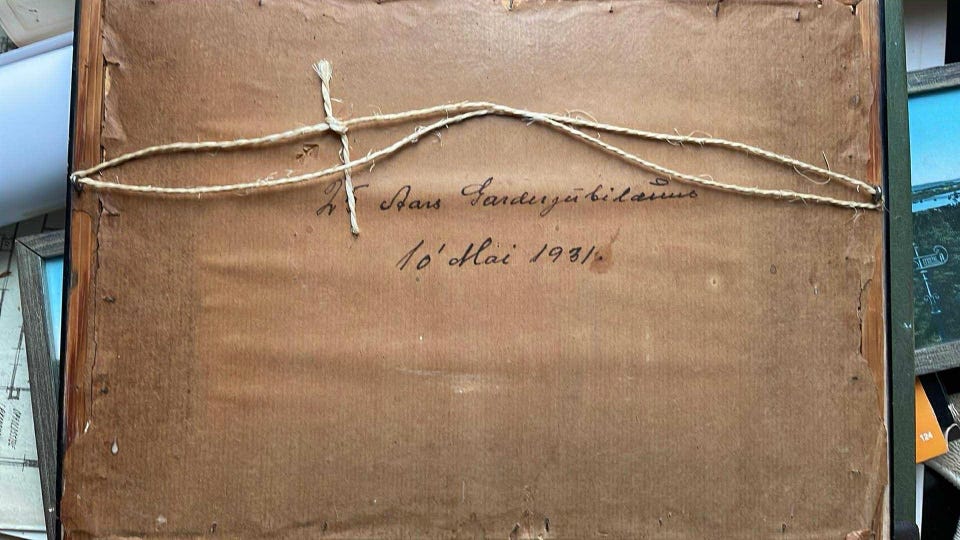 25 Aars Garderjubilæums
10' Mai 1931.
124